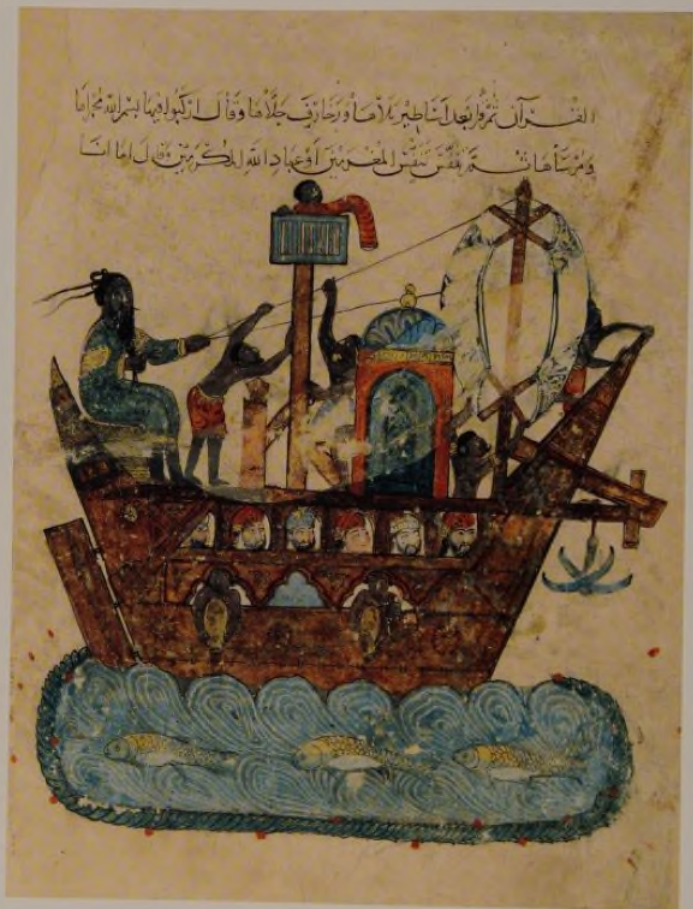 القرآن ثم قرا بعد اساطير تلاها وزخارف جلاها وقال اركبوا فيها بسم الله مجراها
ومرساها ثم تنفس تنفس المغرمين او عباد الله المكرمين وقال اما انا